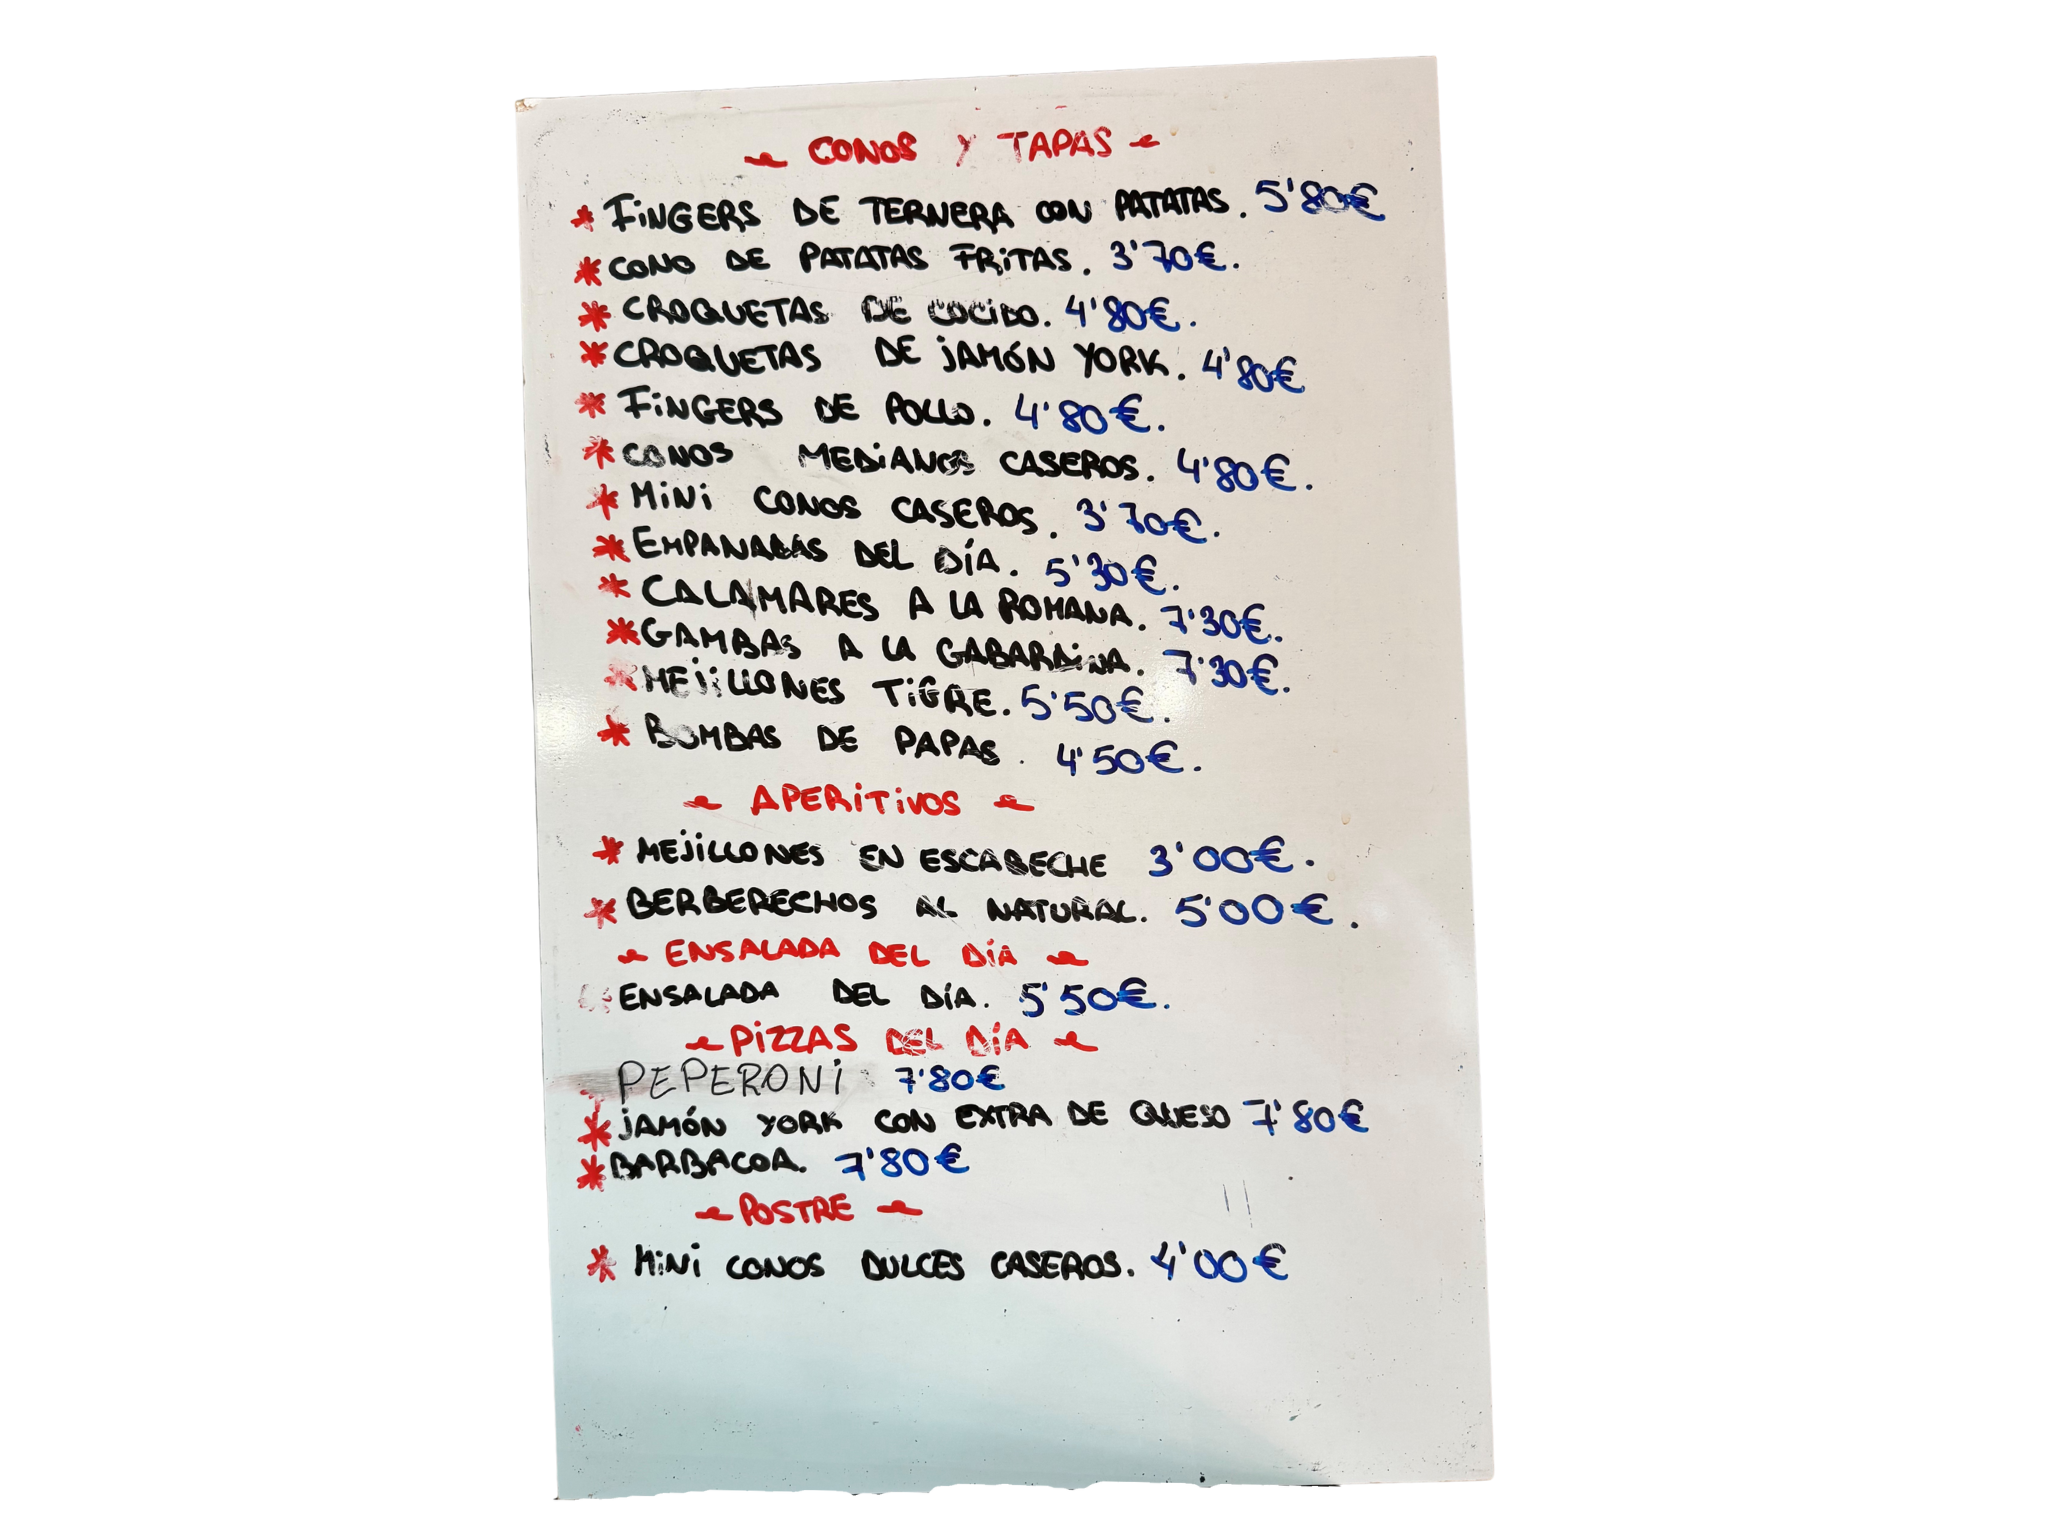 CONOS Y TAPAS
* FiNGERS DE TERNERA CON PATATAS. 5'80€
* CONO DE PATATAS FRiTAS. 3'70€.
* CROQUETAS DE COCiDO. 4'80€.
* CROQUETAS DE jAMÓN YORK. 4'80€
* FiNGERS DE POLLO. 4'80€.
* CONOS MEDiANOS CASEROS. 4'80€.
* MiNi CONOS CASEROS. 3'70€.
* EMPANADAS DEL DÍA. 5'30€.
* CALAMARES A LA ROMANA. 7'30€.
* GAMBAS A LA GABARDiNA. 7'30€.
* MEjiLLONES TiGRE. 5'50€.
* BOMBAS DE PAPAS. 4'50€.
APERiTiVOS
* MEjiLLONES EN ESCABECHE 3'00€.
* BERBERECHOS AL NATURAL. 5'00€.
ENSALADA DEL DÍA
ENSALADA DEL DÍA. 5'50€.
PiZZAS DEL DÍA
PEPERONi 7'80€
* jAMÓN YORK CON EXTRA DE QUESO 7'80€
* BARBACOA. 7'80€
POSTRE
* MiNi CONOS DULCES CASEROS. 4'00€